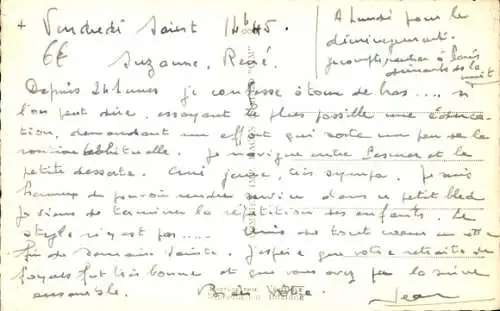 + Vendredi Saint
Suzanne, René.
Depuis 24 heures je confesse à tour de bras .... si
l'on peut dire, essayant le plus possible une éduca-
tion, demandant un effort qui sorte un peu de la
habituelle. Je navigue entre et le
petite desserte. Curé jeune, très sympa. Je suis
heureux de pouvoir rendre service dans ce petit bled
je viens de terminer la répétition des enfants. Le
style n'y est pas .... de tout cœur en
fin de semaine Sainte. J'espère que votre retraite de
foyers fut très bonne et que vous avez pu la suivre
ensemble. Bien vôtre. Jean
A Lundi pour le
déménagement.
Je compte rentrer à Paris
dimanche
nuit